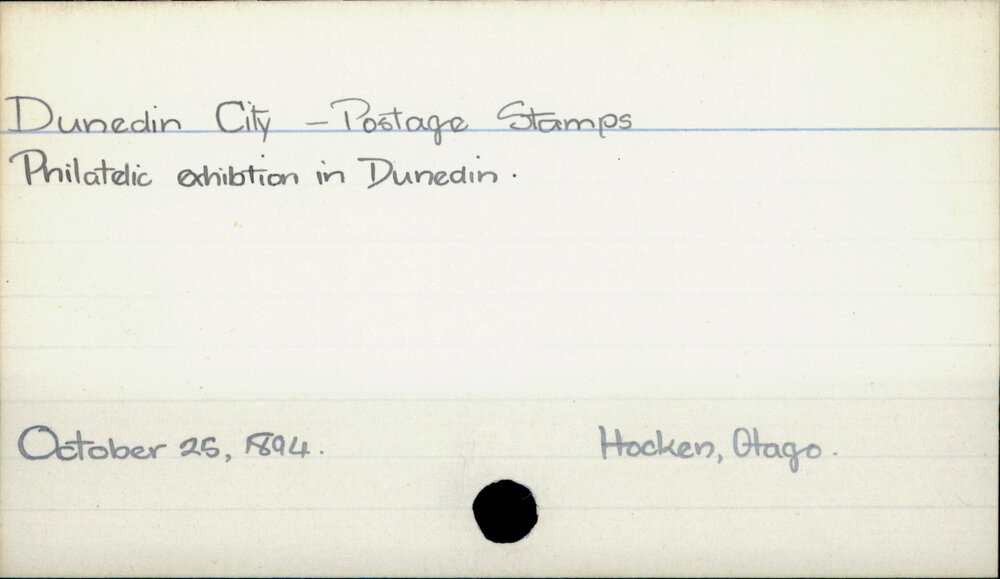 Dunedin City - Postage Stamps
Philatelic exhibtion in Dunedin.
October 25, 1894.
Hocken, Otago.